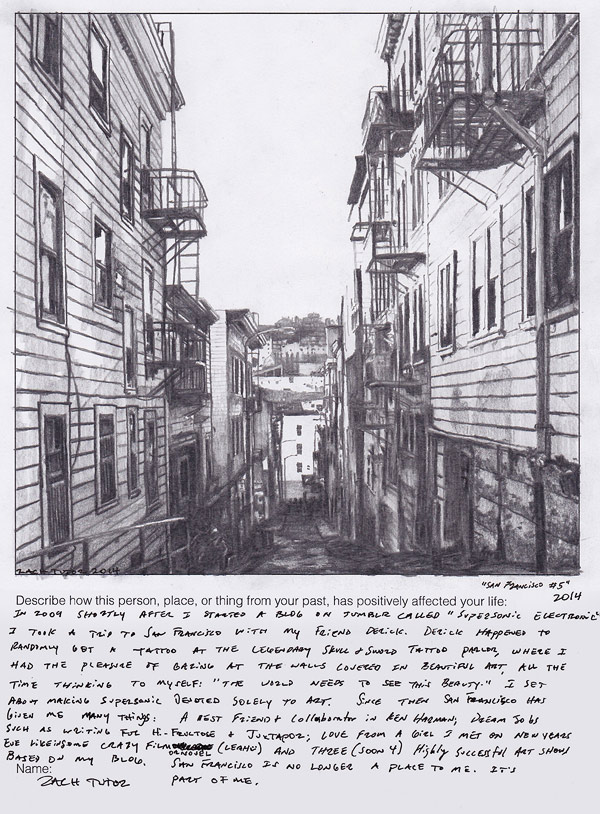 ZACH TUTOR 2014
"SAN FRANCISCO #5"
2014
Describe how this person, place, or thing from your past, has positively affected your life:
IN 2009 SHORTLY AFTER I STARTED A BLOG ON TUMBLR CALLED "SUPERSONIC ELECTRONIC"
I TOOK A TRIP TO SAN FRANCISCO WITH MY FRIEND DERICK. DERICK HAPPENED TO
RANDOMLY GET A TATTOO AT THE LEGENDARY SKULL & SWORD TATTOO PARLOR, WHERE I
HAD THE PLEASURE OF GAZING AT THE WALLS COVERED IN BEAUTIFUL ART, ALL THE
TIME THINKING TO MYSELF: "THE WORLD NEEDS TO SEE THIS BEAUTY." I SET
ABOUT MAKING SUPERSONIC DEVOTED SOLELY TO ART. SINCE THEN SAN FRANCISCO HAS
GIVEN ME MANY THINGS: A BEST FRIEND & COLLABORATOR IN KEN HARMAN, DREAM JOBS
SUCH AS WRITING FOR HI-FRUCTOSE & JUXTAPOZ; LOVE FROM A GIRL I MET ON NEW YEARS
EVE LIKE IN SOME CRAZY FILM OR NOVEL (LEAHU) AND THREE (SOON 4) HIGHLY SUCCESSFUL ART SHOWS
BASED ON MY BLOG. SAN FRANCISCO IS NO LONGER A PLACE TO ME. IT'S
PART OF ME.
Name:
ZACH TUTOR